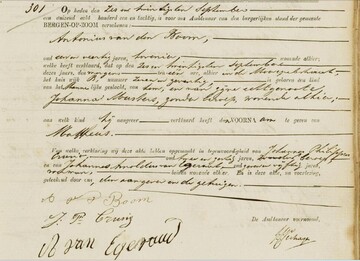 301
Op heden den Zes en twintigsten September
van achttien honderd een en tachtig, is voor ons Ambtenaar van den burgerlijken stand der gemeente
BERGEN-OP-ZOOM verschenen:
Antonius van den Boom,
oud een en veertig jaren, hovenier wonende alhier;
welke heeft verklaard, dat op den Zes en twintigsten September
dezes jaars, des morgens ten een ure, in het
huis wijk B. nummer zeven en veertig is geboren een kind
van het Mannelijke geslacht, van hem, en van zijne echtgenoote
Johanna Musters, zonder beroep, wonende alhier,
aan welk kind hij aangever verklaard heeft als VOORNAAM te geven
Mattheus.
Van welke verklaring deze akte hebben opgemaakt in tegenwoordigheid van Johannes Philippus
oud jaren,
en van Johannes Arnoldus van Egeraad, oud jaren,
beiden wonende alhier. En is deze akte, na voorlezing,
geteekend door ons, den aangever en de getuigen.
A v d Boom
J. P.
A van Egeraad
De Ambtenaar voornoemd,